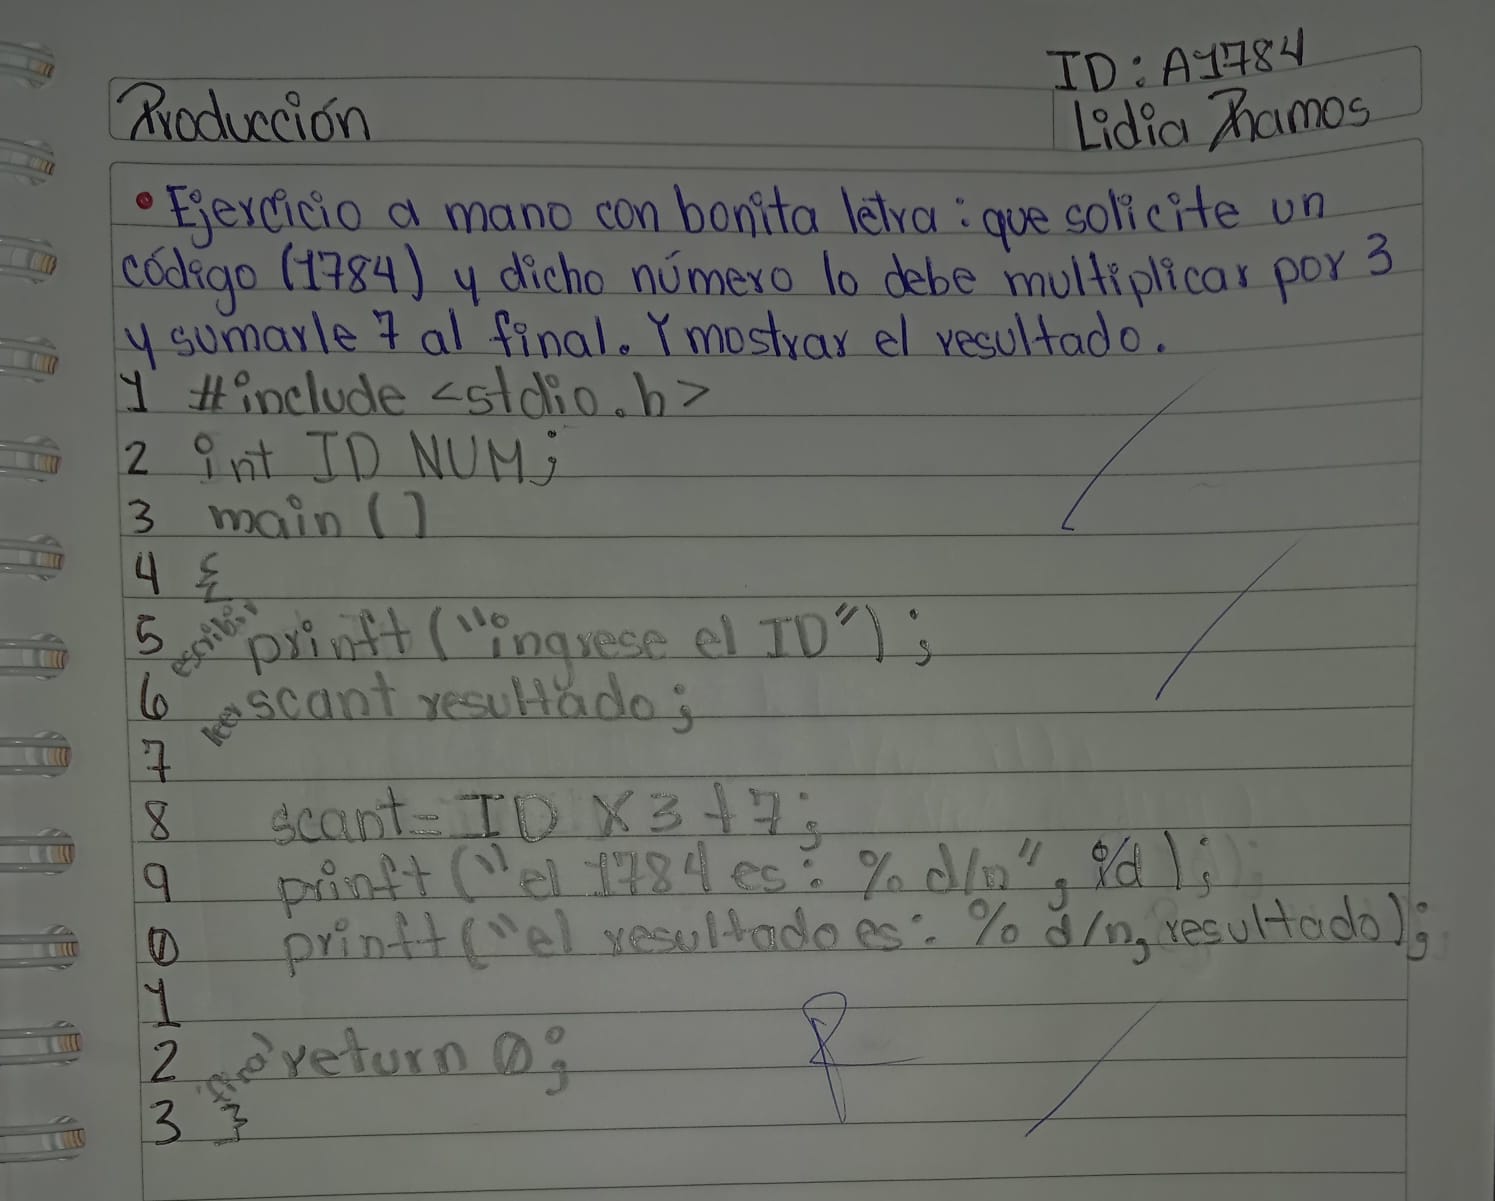 ID: A1784
Producción
Lidia Rhamos
• Ejercicio a mano con bonita letra: que solicite un
código (1784) y dicho número lo debe multiplicar por 3
y sumarle 7 al final. Y mostrar el resultado.
1 #include <stdio.h>
2 int ID NUM;
3 main ()
4 {
5 escribir printt ("ingrese el ID");
6 leer scant resultado;
7
8 scant= ID X 3 + 7;
9 printt ("el 1784 es: % d/n", %d);
0 printt ("el resultado es: % d/n, resultado);
1
2 fin return 0;
3 }